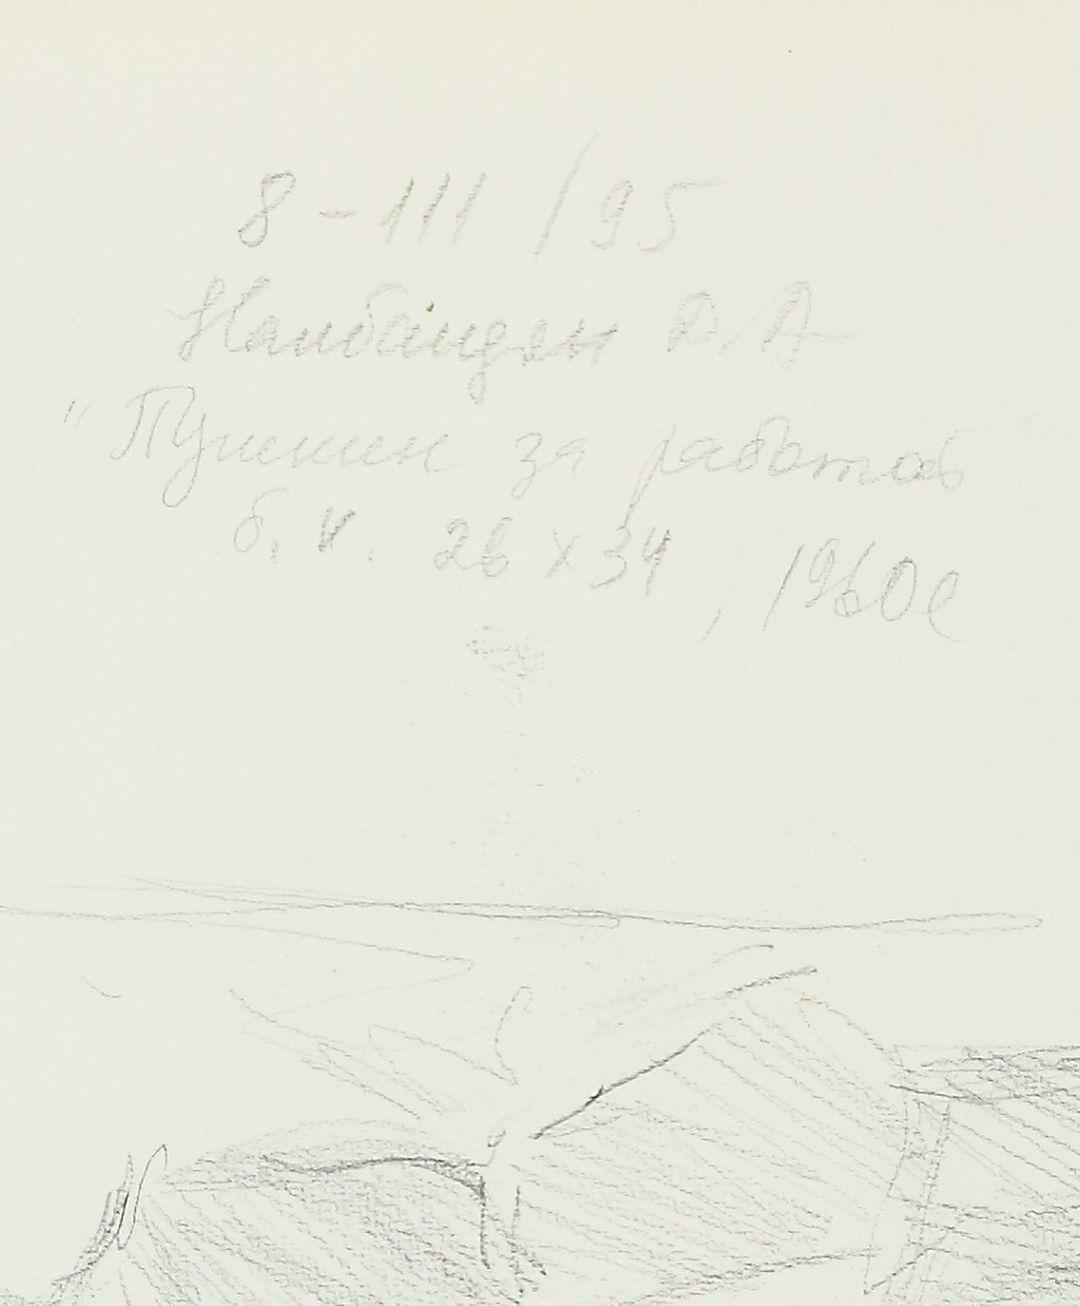 8 - III / 95
Налбандян Д. А
"Пушкин за работой
б. к. 26 х 34, 1960е